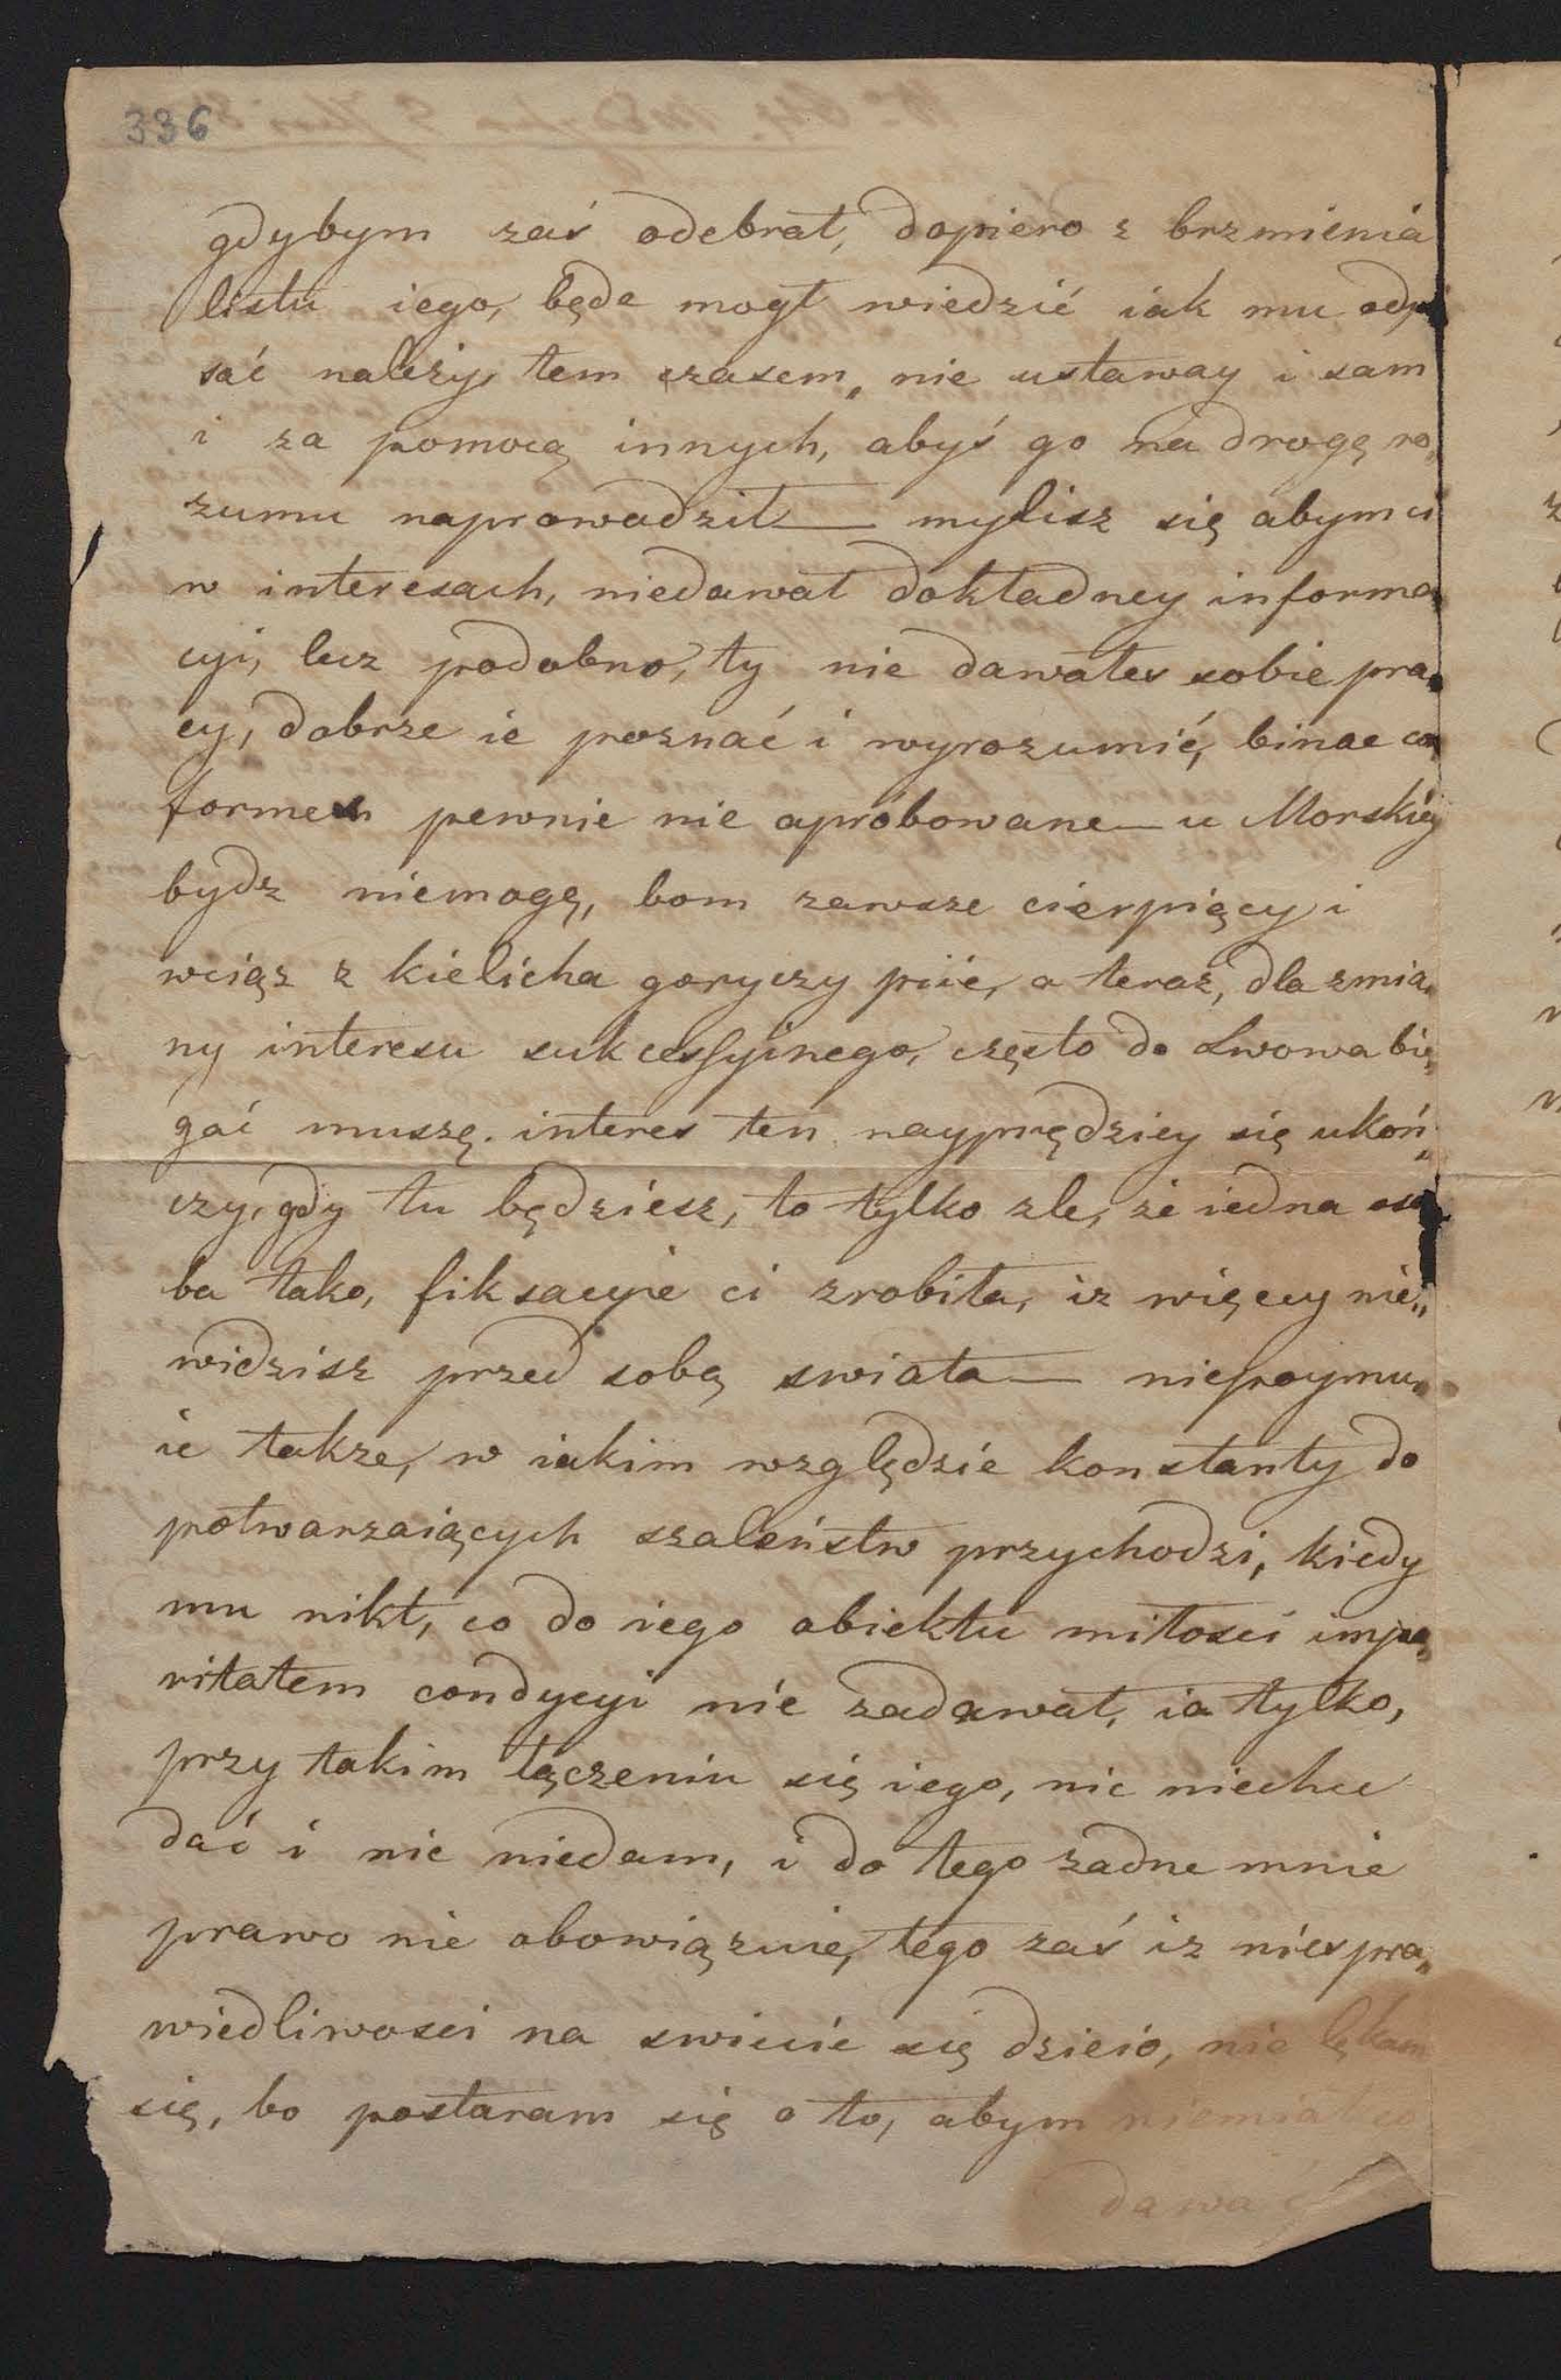 336
gdybym zaś odebrał, dopiero z brzmienia
listu iego, będe mogł wiedzić iak mu odpi
sać należy, tem czasem, nie ustaway i sam
i za pomocą innych, abyś go na drogę ro„
zumu naprowadził — mylisz się abym ci
w interesach, niedawał dokładney informa„
cyi, lecz podobno, ty nie dawałes sobie pra„
cy, dobrze ie poznać i wyrozumić, binae con
formes pewnie nie aprobowane — u Morskiey
bydz niemogę, bom zawsze cierpiący i
wciąz z kielicha goryczy piie, a teraz, dla zmia„
ny interesu sukcessyinego, często do Lwowa bie„
gać muszę. interes ten nayprędziey się ukoń„
czy, gdy tu będziesz, to tylko zle, że iedna oso
ba tako, fiksacyie ci zrobiła, iz więcey nie„
widzisz przed sobą swiata — niepoymu„
ie takze, w iakim względzie konstanty do
potwarzaiących szaleństw przychodzi, kiedy
mu nikt, co do iego obiektu miłosci impa„
ritatem condycyi nie zadawał, ia tylko,
przy takim łączeniu się iego, nic niechce
dać i nic niedam, i do tego zadne mnie
prawo nie obowiązuie, tego zaś iz niespra„
wiedliwosci na swiecie się dzieio, nie lękam
się, bo postaram się o to, abym niemiał co
dawać